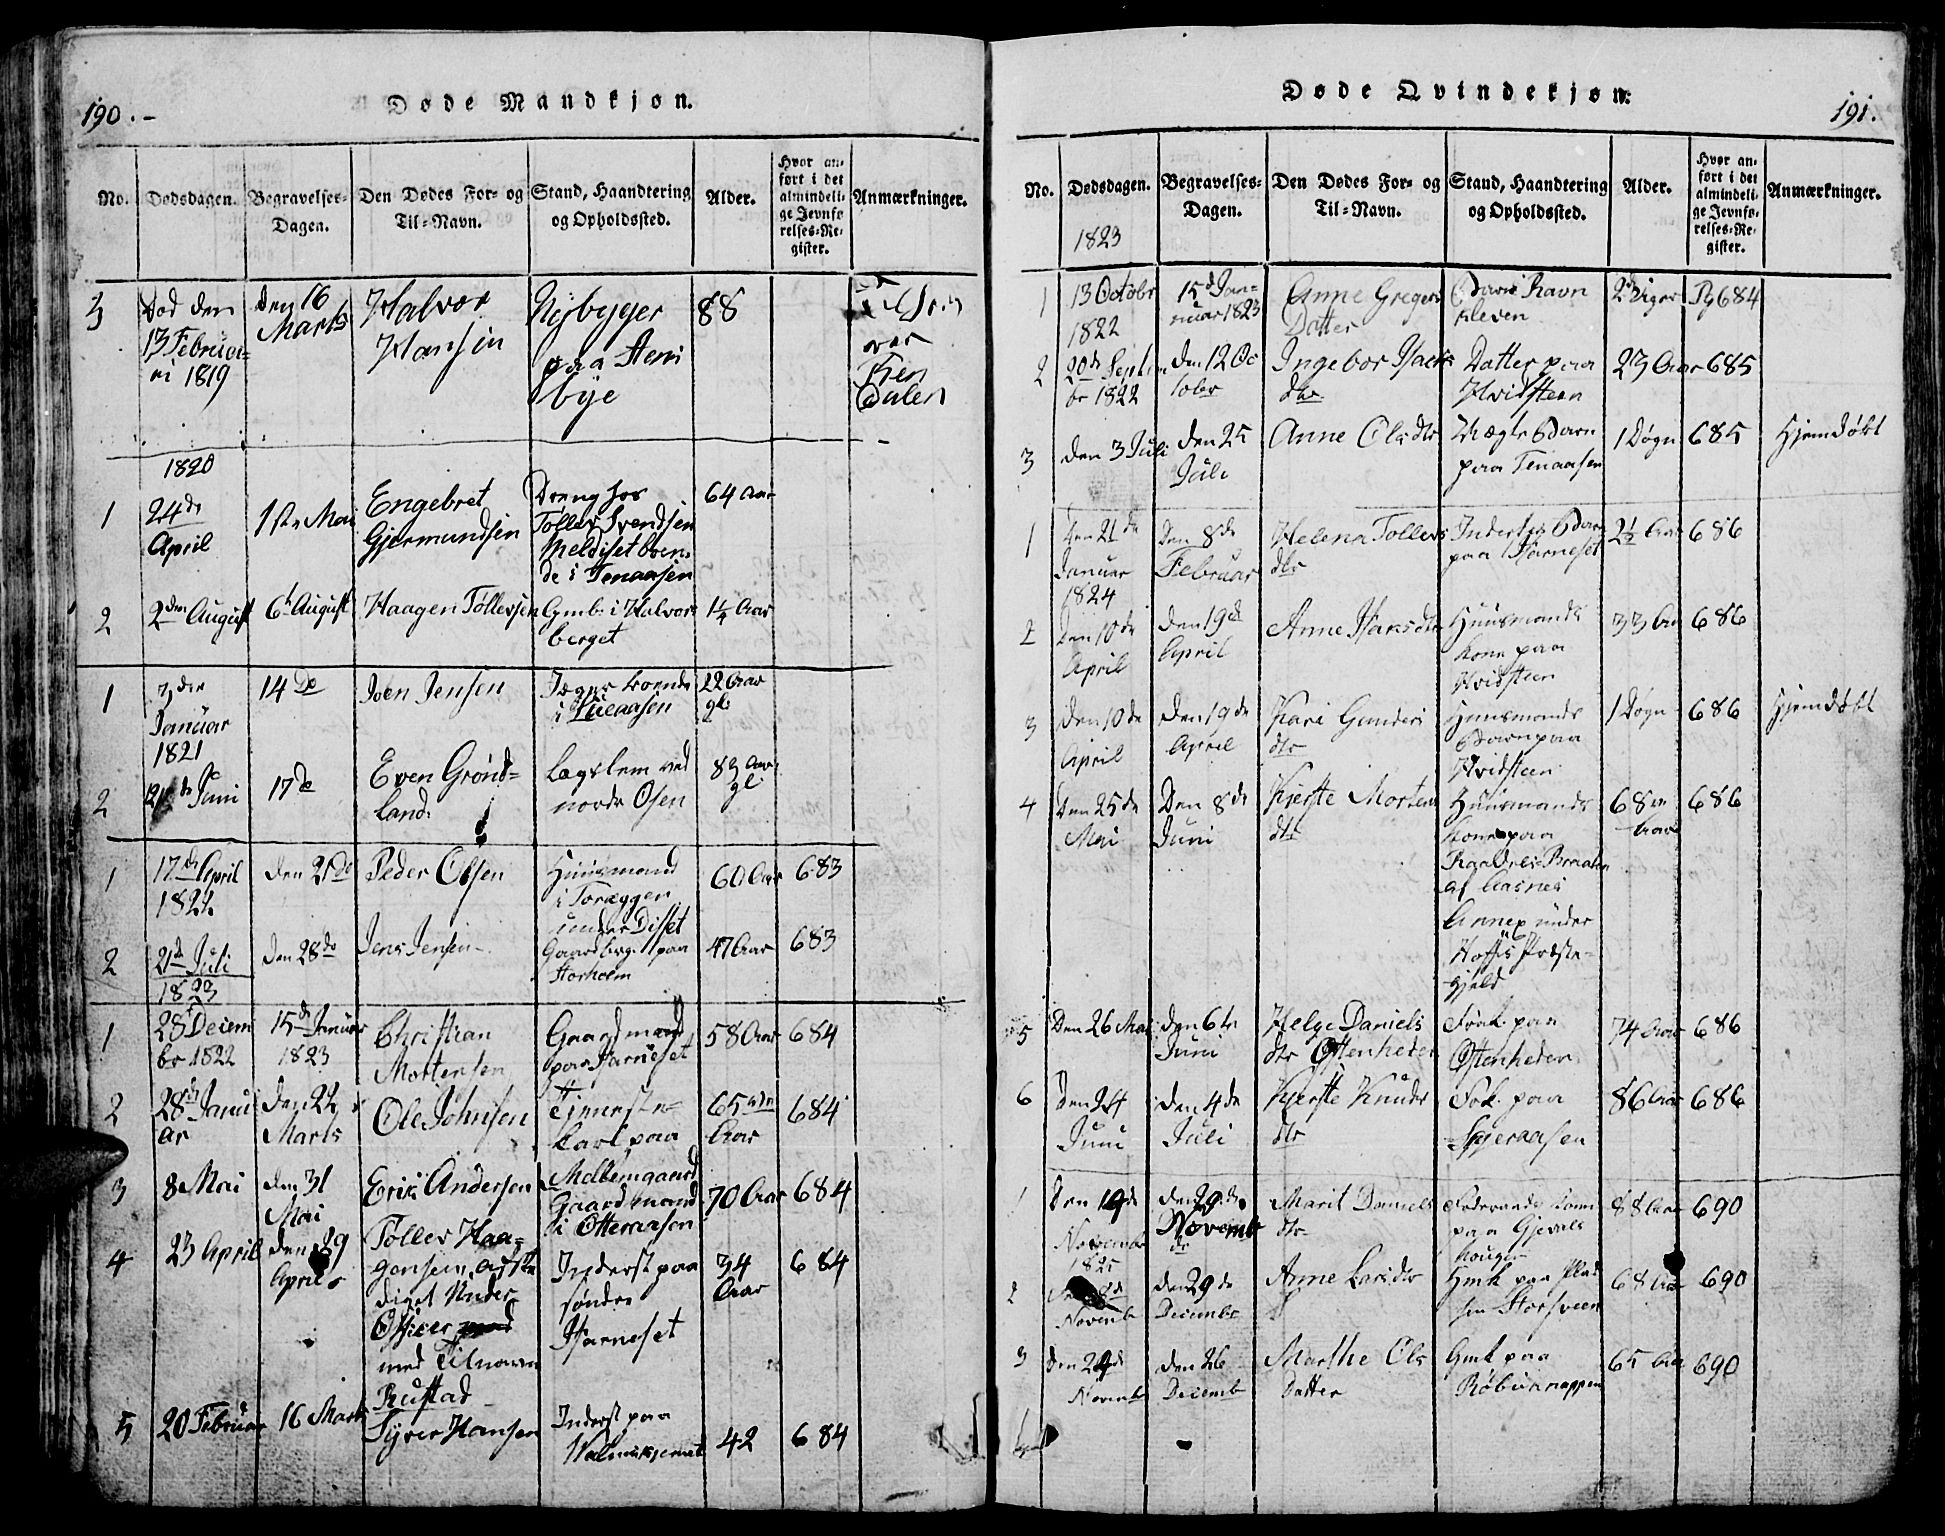 190.-
Døde Mandkjøn.
No.
Dødsdagen.
Begravelses-
Dagen.
Den Dødes For- og
Til-Navn.
Stand, Haandtering
og Opholdssted.
Alder.
Hvor an-
ført i det
almindeli-
ge Jevnfø-
relses-Re-
gister.
Anmærkninger.
3
Død den
13 Februa-
ri 1819
Den 16
Marts
Halvor
Hansen
Nybygger
paa
bye
88
over
1820
1
24de
April
1ste Mai
Engebret
Gjermundsen
Dreng hos
Tollev Svendsen
boen-
de i Tenaasen
64 Aar
2
2den August
6te August
Haagen Tollevsen
i Halvors
berget
1¼ Aar
1
3die
Januar
1821
14de
Joen Jensen
boende
i
22 Aar
gl.
2
Juni
17de
Even Grønd-
land
Lægslem ved
nordre Osen
83 Aar
gl
1
17de April
1822
den 21de
Peder Olsen
Huusmand
i Toræggen
under Disset
60 Aar
683
2
21de Juli
den 28de
Jens Jensen
Gaardbrug. paa
Storholm
47 Aar
683
1823
1
28 Decem
br 1822
15de Januar
1823
Christian
Mortensen
Gaardmand
paa Harneset
58 Aar
684
2
28de Janu
ar
den 22
Marts
Ole Johnsen
Tjeneste-
karl paa
65
Aar
684
3
8 Mai
den 31
Mai
Erik Andersen
Gaardmand
i Otteraasen
70 Aar
684
4
23 April
den 29
April
Tollev Haa-
gensen, afske
diget Under-
Officer
med Tilnavn
Rustad
Inderst paa
søndre
Harneset
34
Aar
684
5
20 Februar
16 Marts
Syver Hansen
Inderst paa
42
684
Døde Qvindekjøn.
191.
No.
Dødsdagen.
1823
Begravelses-
Dagen.
Den Dødes For- og
Til-Navn.
Stand, Haandtering
og Opholdssted.
Alder.
Hvor an-
ført i det
almindeli-
ge Jevnfø-
relses-Re-
gister.
Anmærkninger.
1
13 Octobr
1822
15d Jan-
nuar 1823
Anne Gregers
Datter
Barn i Ravn
kleven
2
Pg 684
2
20de Septem
br 1822
den 12 Oc
tober
Ingebor Isachs
dtr
Datter paa
Hvidsteen
23 Aar
685
3
den 3 Juli
den 25
Juli
Anne Olsdtr
Barn
paa Tenaasen
1 Døgn
685
Hjemdøbt
1
den 21de
Januar
1824
Den 8de
Februar
Helena Tollevs
dtr
Inderstes Barn
paa Harneset
2½ Aar
686
2
Den 10de
April
den 19de
April
Anne Isaksdtr
Huusmands
kone paa
Hvidsteen
33 Aar
686
3
den 10de
April
den 19de
April
Kari Gunders
dtr
Huusmands
Barn paa
Hvidsteen
1 Døgn
686
Hjemdøbt
4
Den 25de
Mai
Den 8de
Juni
Kjerste Mortens
dtr
Huusmands
kone paa
Braaten
af Aasnes
Annex under
Hoffs Præste-
gjeld
68
Aar
686
5
Den 26 Mai
den 6te
Juni
Helge Daniels
dtr Ottenheden
paa
Ottenheden
74 Aar
686
6
Den 24
Juni
den 4de
Juli
Kjerste Knuds
dtr
paa
86 Aar
686
1
Den 19de
November
1825
den 29de
Novemb
Marit Daniels
dtr
paa Gjevels
hougen
88 Aar
690
2
Novemb
den 29de
Decembr
Anne Larsdtr
Hmk paa Plad
sen Storsveen
68 Aar
690
3
Den 29de
Novemb
den 26
Decemb
Marthe Ols
Datter
Gmk paa
65 Aar
690
4